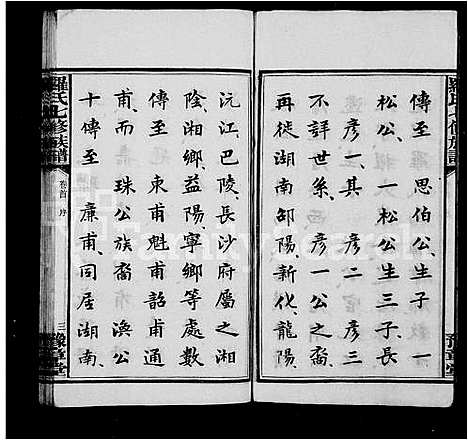 羅氏七修族譜
傳至 思伯公生子一
松公 一松公生三子長
彥一其 彥二 彥三
不詳世系 彥一公之裔
再徙湖南邵陽新化龍陽
沅江巴陵長沙府屬之湘
陰湘鄉益陽寧鄉等處數
傳至 東甫魁甫韶甫通
甫而 珠公族裔渙公
十傳至 廉甫同居湖南
羅氏七修族譜 卷首 序 三 豫章堂
FamilySearch